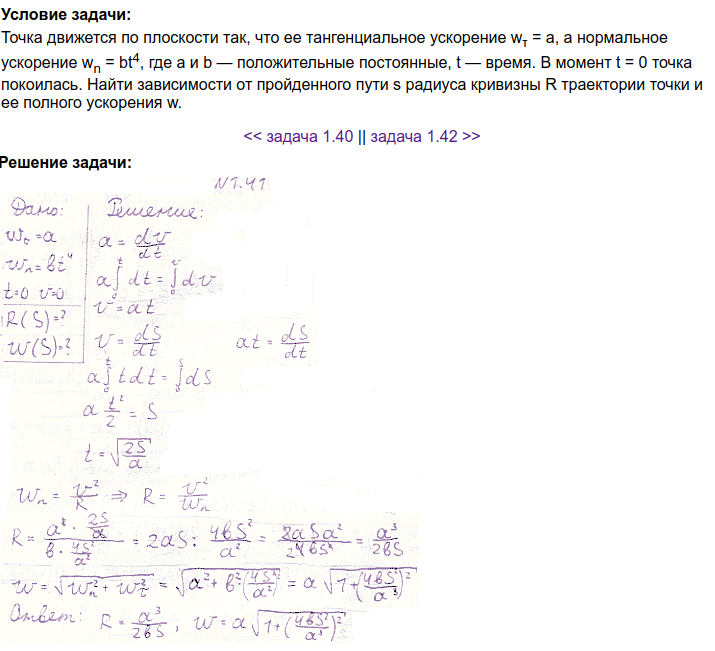 Условие задачи:
Точка движется по плоскости так, что ее тангенциальное ускорение wτ = a, а нормальное
ускорение wn = bt⁴, где a и b — положительные постоянные, t — время. В момент t = 0 точка
покоилась. Найти зависимости от пройденного пути s радиуса кривизны R траектории точки и
ее полного ускорения w.
<< задача 1.40 || задача 1.42 >>
Решение задачи:
N1.41
Дано: Решение:
wτ = a
a = dv/dt
wn = bt⁴
a ∫₀ᵗ dt = ∫₀ᵛ dv
t=0 v=0
v = at
R(S)=?
v = dS/dt at = dS/dt
w(S)=?
a ∫₀ᵗ t dt = ∫₀ˢ dS
a t²/2 = S
t = √(2S/a)
wn = v²/R ⇒ R = v²/wn
R = (a² · 2S/a)/(b · 4S²/a²) = 2aS : 4bS²/a² = 2aSa²/4bS² = a³/2bS
w = √(wn² + wτ²) = √(a² + b²(4S²/a²)²) = a√(1+(4bS²/a³)²)
Ответ: R = a³/2bS ; w = a√(1+(4bS²/a³)²)